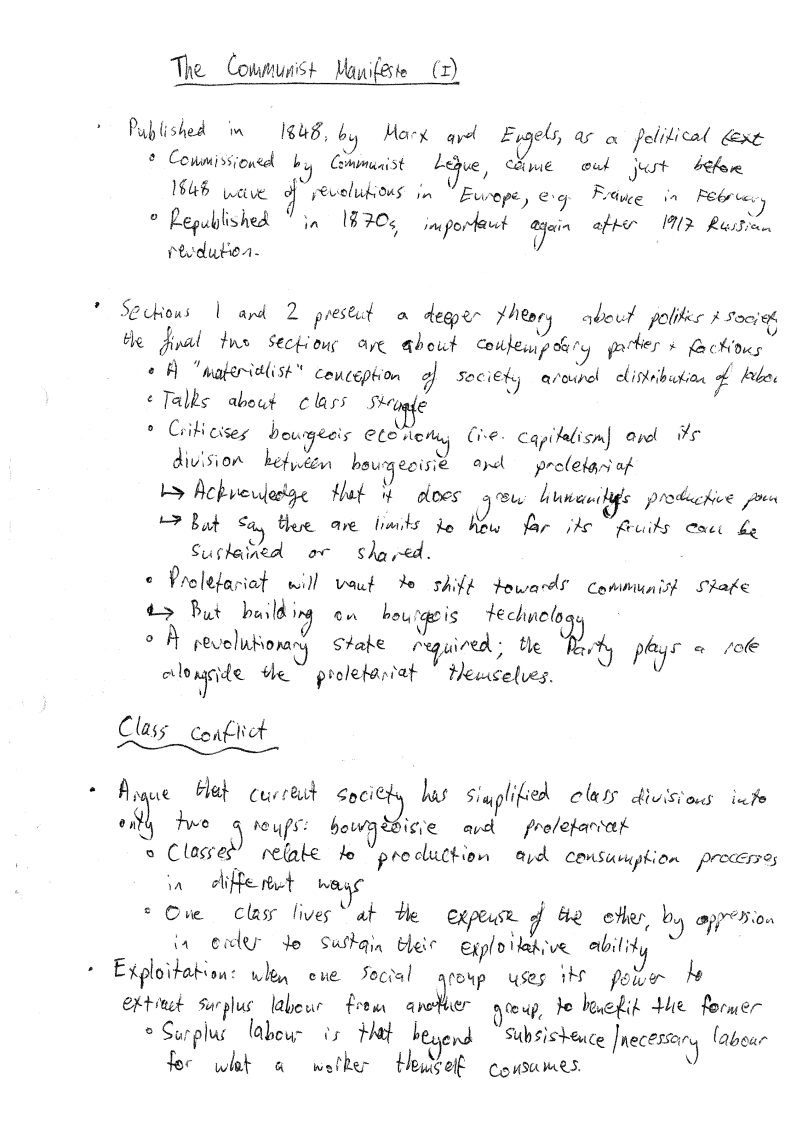 The Communist Manifesto (I)
• Published in 1848, by Marx and Engels, as a political text
◦ Commissioned by Communist Legue, came out just before
1848 wave of revolutions in Europe, e.g. France in February
◦ Republished in 1870s, important again after 1917 Russian
revolution.
• Sections 1 and 2 present a deeper theory about politics + society
the final two sections are about contemporary parties + factions
• A "materialist" conception of society around distribution of labou
• Talks about class struggle
◦ Criticises bourgeois economy (i.e. capitalism) and its
division between bourgeoisie and proletariat
↳ Acknowledge that it does grow humanity's productive pow
↳ But say there are limits to how far its fruits can be
sustained or shared.
• Proletariat will want to shift towards communist state
↳ But building on bourgeois technology
◦ A revolutionary state required; the Party plays a role
alongside the proletariat themselves.
Class conflict
• Argue that current society has simplified class divisions into
only two groups: bourgeoisie and proletariat
◦ Classes relate to production and consumption processes
in different ways
◦ One class lives at the expense of the other, by oppression
in order to sustain their exploitative ability
• Exploitation: when one social group uses its power to
extract surplus labour from another group, to benefit the former
◦ Surplus labour is that beyond subsistence/necessary labour
for what a worker themself consumes.